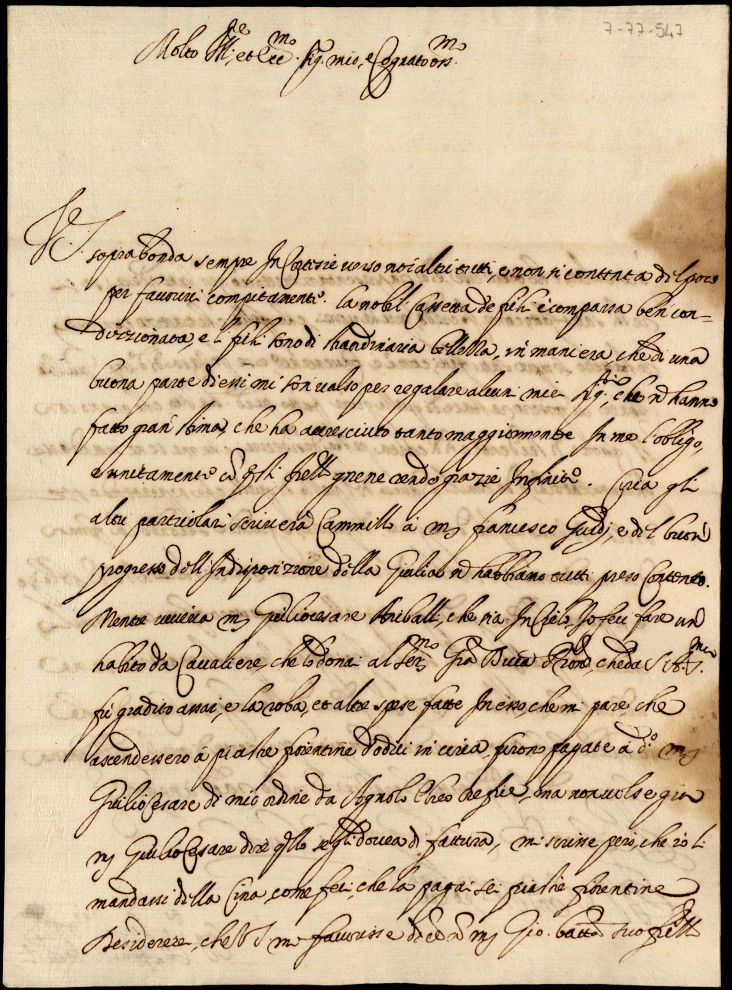 7-77-547
Molto Ill.re, et Ecc.mo Sig. mio, e Cognato oss.mo
V.S. soprabonda sempre In Cortesie verso noi altri tutti, e non si contenta del poco
per favorirci compitamente. la nobil Cassetta de fichi è comparsa ben con=
dizzionata, e l' fichi sono di straordinaria bellezza, in maniera, che di una
buona parte di essi mi son valso per regalare alcuni miei Sig.ri, che nè hanno
fatto gran stima, che ha accresciuto tanto maggiormente In me l'obligo,
e unitamente gnene rendo grazie Infinite. Circa gli
altri particolari scriverà Cammillo à m. Francesco Guidj, e del buon
progresso dell'Indisposizione della Giulia nè habbiamo tutti preso Contento.
Mentre viveva m. Giuliocesare Aniballi, che sia In Cielo, Io feci fare un
habito da Cavaliere, che lo donai al Ser.mo Gra Duca che da S.A.
fu gradito assai, e la roba, et altre spese fatte In esso, che mi pare che
ascendessero à piastre fiorentine dodici in circa, furono pagate à d.o m.
Giulio Cesare di mio ordine da Agnolo Ebreo ma non volse già
m. Giulio Cesare dire q.llo se gli dovea di fattura, mi scrisse però, che io li
mandassi della Cina, come feci che la pagai sei piastre fiorentine
Desiderere, che V.S. me favorisse m. Gio. batta suo frãllo